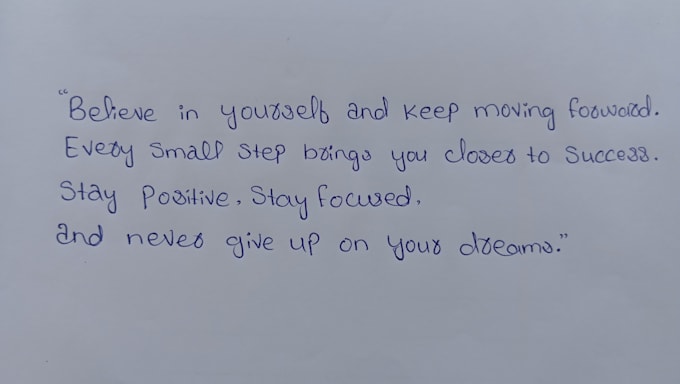 "Believe in yourself and keep moving forward.
Every small step brings you closer to success.
Stay Positive, Stay focused,
and never give up on your dreams."